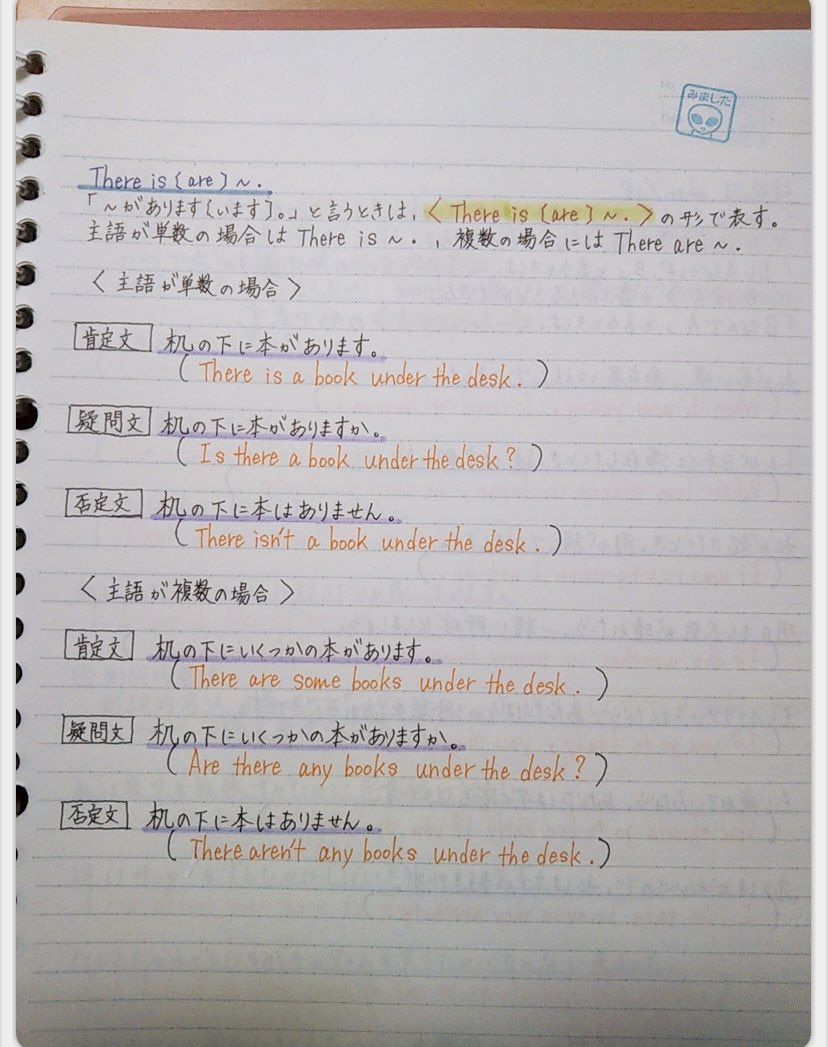 みました
There is〔are〕～.
「～があります〔います〕。」と言うときは,〈There is〔are〕～.〉の形で表す。
主語が単数の場合は There is ～. , 複数の場合には There are ～.
〈主語が単数の場合〉
肯定文 机の下に本があります。
(There is a book under the desk.)
疑問文 机の下に本がありますか。
(Is there a book under the desk?)
否定文 机の下に本はありません。
(There isn't a book under the desk.)
〈主語が複数の場合〉
肯定文 机の下にいくつかの本があります。
(There are some books under the desk.)
疑問文 机の下にいくつかの本がありますか。
(Are there any books under the desk?)
否定文 机の下に本はありません。
(There aren't any books under the desk.)